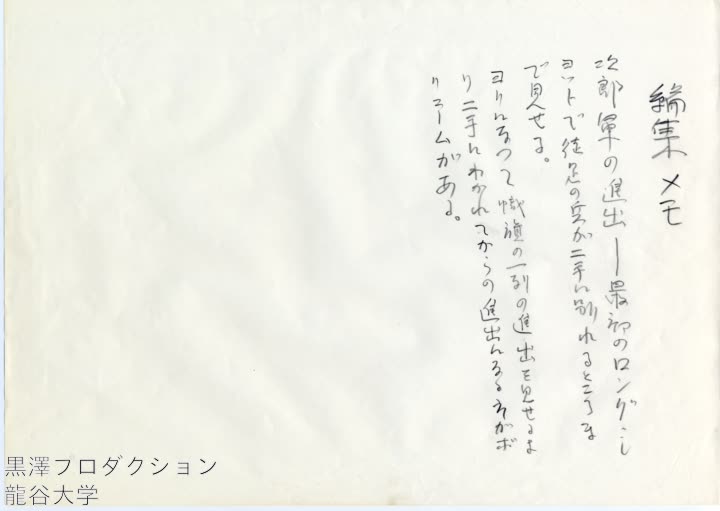 編集メモ
次郎軍の進出―最初のロング・シ
ョットで徒足の兵が二手に別れるところま
で見せる。
ヨリになつて幟旗の一列の進出を見せるよ
り二手にわかれてからの進出になる方がボ
リュームがある。
黒澤プロダクション
龍谷大学